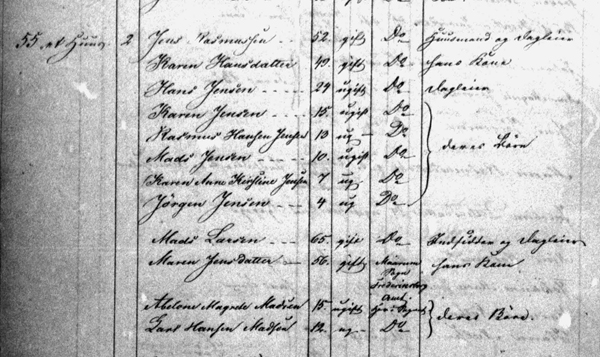 55. et Huus 2 Jens Rasmussen 52. gift Do Huusmand og Dagleier
Karen Hansdatter 49. gift Do hans Kone
Hans Jensen 24 ugift Do Dagleier
Karen Jensen 15. ugift Do
Rasmus Hansen Jensen 13 ug Do
deres Börn
Mads Jensen 10. ugift Do
Karen Anne Kirstine Jensen 7 ug Do
Jørgen Jensen 4 ug Do
Mads Larsen 65. gift Do Indsidder og Dagleier
Maren Jensdatter 56. gift Sogn hans Kone
Frederiksborg
Amt
Abelone Magrete Madsen 15. ugift Sogn
deres Börn.
Lars Hansen Madsen 12. ug Do